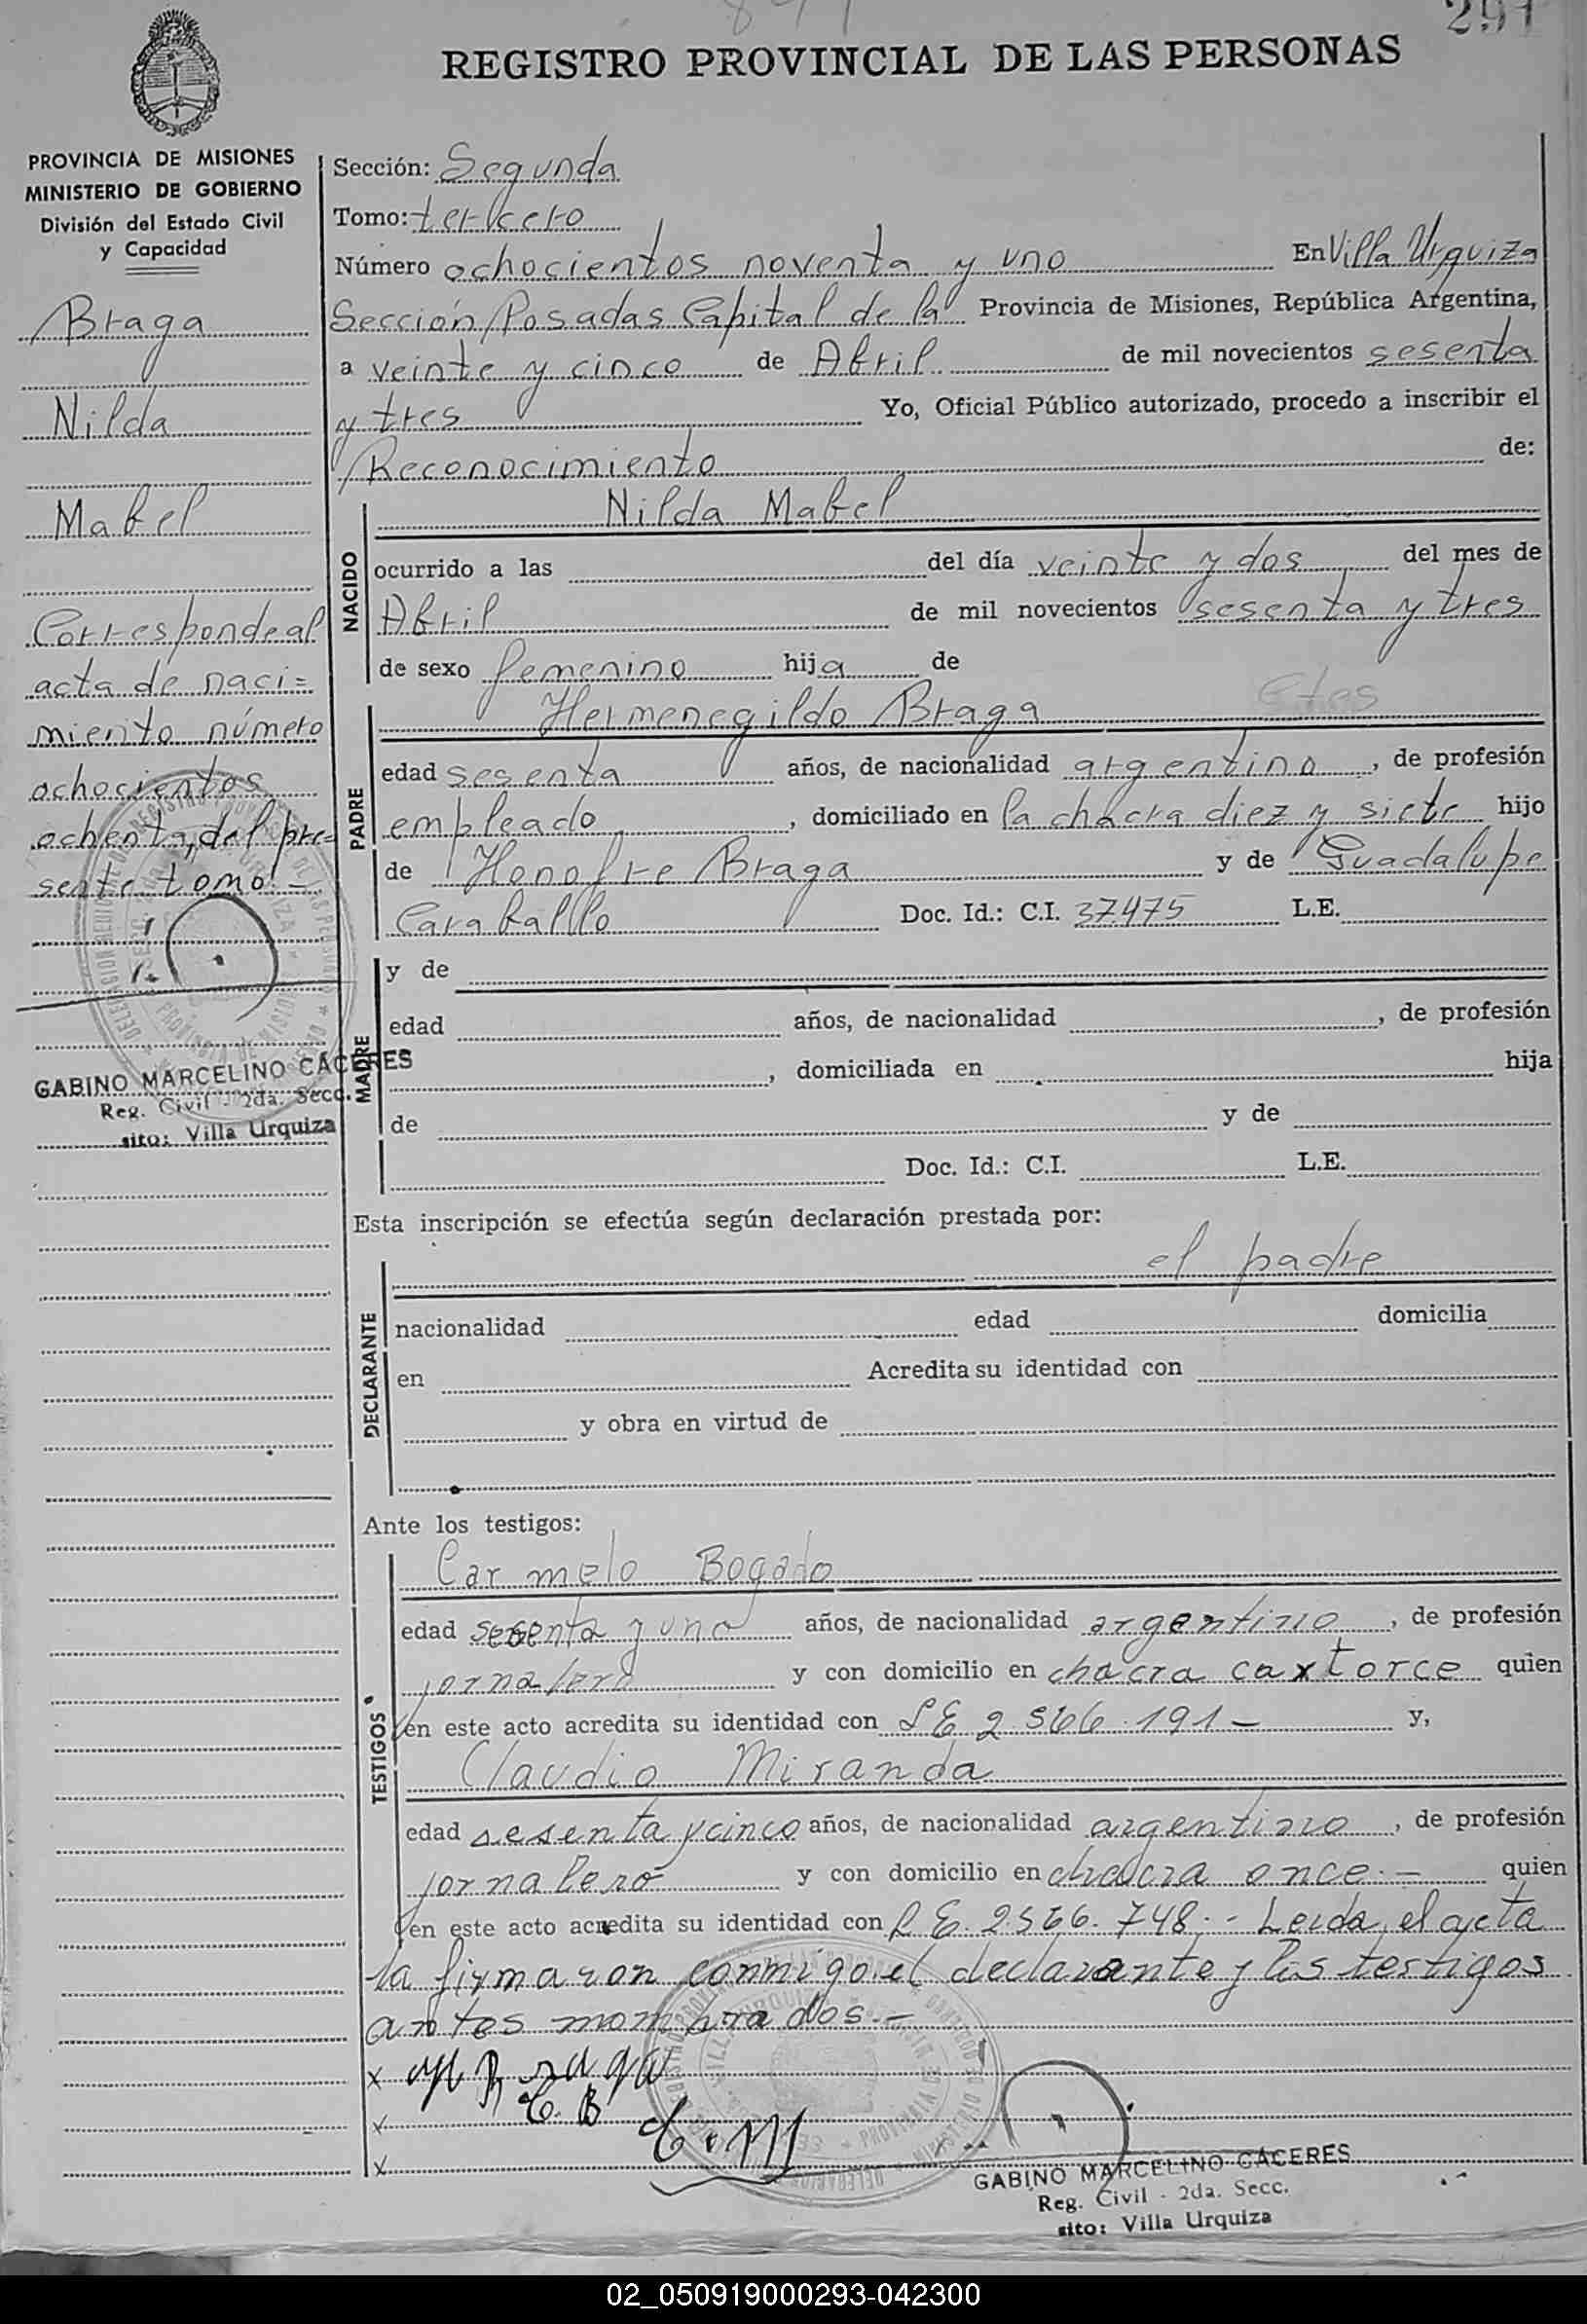 891
291
REGISTRO PROVINCIAL DE LAS PERSONAS
PROVINCIA DE MISIONES
MINISTERIO DE GOBIERNO
División del Estado Civil
y Capacidad
Braga
Nilda
Mabel
Corresponde al
acta de naci=
miento número
ochocientos
ochenta, del pre=
sente tomo.-
GABINO MARCELINO CACERES
Reg. Civil - 2da. Secc.
sito: Villa Urquiza
Sección: Segunda
Tomo: tercero
Número ochocientos noventa y uno En Villa Urquiza
Sección Posadas Capital de la Provincia de Misiones, República Argentina,
a veinte y cinco de Abril de mil novecientos sesenta
y tres Yo, Oficial Público autorizado, procedo a inscribir el
Reconocimiento de:
NACIDO
Nilda Mabel
ocurrido a las del día veinte y dos del mes de
Abril de mil novecientos sesenta y tres
de sexo femenino hija de
PADRE
Hermenegildo Braga
edad sesenta años, de nacionalidad argentino, de profesión
empleado, domiciliado en la chacra diez y siete hijo
de Honofre Braga y de Guadalupe
Caraballo Doc. Id.: C.I. 37475 L.E.
MADRE
y de
edad años, de nacionalidad , de profesión
, domiciliada en hija
de y de
Doc. Id.: C.I. L.E.
Esta inscripción se efectúa según declaración prestada por:
DECLARANTE
el padre
nacionalidad edad domicilia
en Acredita su identidad con
y obra en virtud de
Ante los testigos:
TESTIGOS
Carmelo Bogado
edad sesenta y uno años, de nacionalidad argentino, de profesión
jornalero y con domicilio en chacra caxtorce quien
en este acto acredita su identidad con L E 2.566.191 - y,
Claudio Miranda
edad sesenta y cinco años, de nacionalidad argentino, de profesión
jornalero y con domicilio en chacra once.- quien
en este acto acredita su identidad con L E. 2.566.748.- Leida el acta
la firmaron conmigo el declarante y los testigos
antes nombrados.-
x
x C. B
x C. M
GABINO MARCELINO CACERES
Reg. Civil - 2da. Secc.
sito: Villa Urquiza
02_050919000293-042300